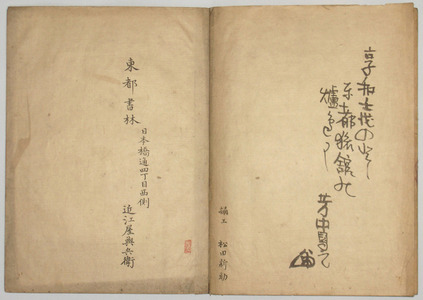 享和壬戌の
東都旅館
爐邊
芳中写之
彫工　松田新助
東都書林
日本橋通四丁目西側
近江屋與兵衛